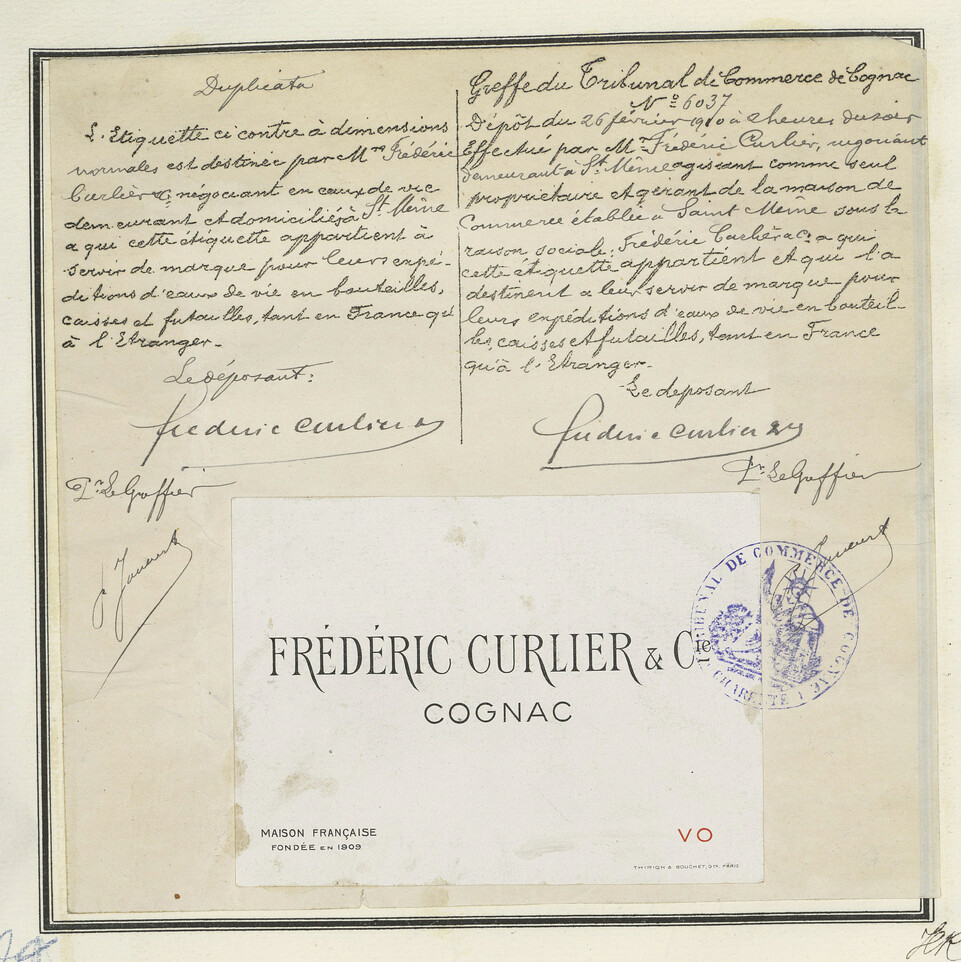 Duplicata
L'Etiquette ci contre à dimensions
normales est destinée par Mrs Frédéric
Curlier & Cie négociant en eaux de vie
demeurant et domiciliés à St Même
a qui cette étiquette appartient à
servir de marque pour leurs expé-
ditions d'eaux de vie en bouteilles,
caisses et futailles, tant en France qu'
à l'Etranger.
Le déposant:
Frédéric Curlier
Pr Le Greffier
Greffe du Tribunal de Commerce de Cognac
No 6037
Dépôt du 26 février 1910 à 2 heures du soir
Effectué par Mr Frédéric Curlier, négociant
demeurant à St Même agissant comme seul
propriétaire et gérant de la maison de
Commerce établie à Saint Même sous la
raison sociale: Frédéric Curlier & Co a qui
cette étiquette appartient et qui l'a
destinent a leur servir de marque pour
leurs expéditions d'eaux de vie en bouteil-
les, caisses et futailles, tant en France
qu'à l'Etranger.
Le deposant
Frédéric Curlier
Pr Le Greffier
TRIBUNAL DE COMMERCE DE COGNAC
(CHARENTE)
FRÉDÉRIC CURLIER & Cie
COGNAC
MAISON FRANÇAISE
FONDÉE EN 1909
VO
THIRION & BOUCHET, Gr. PARIS